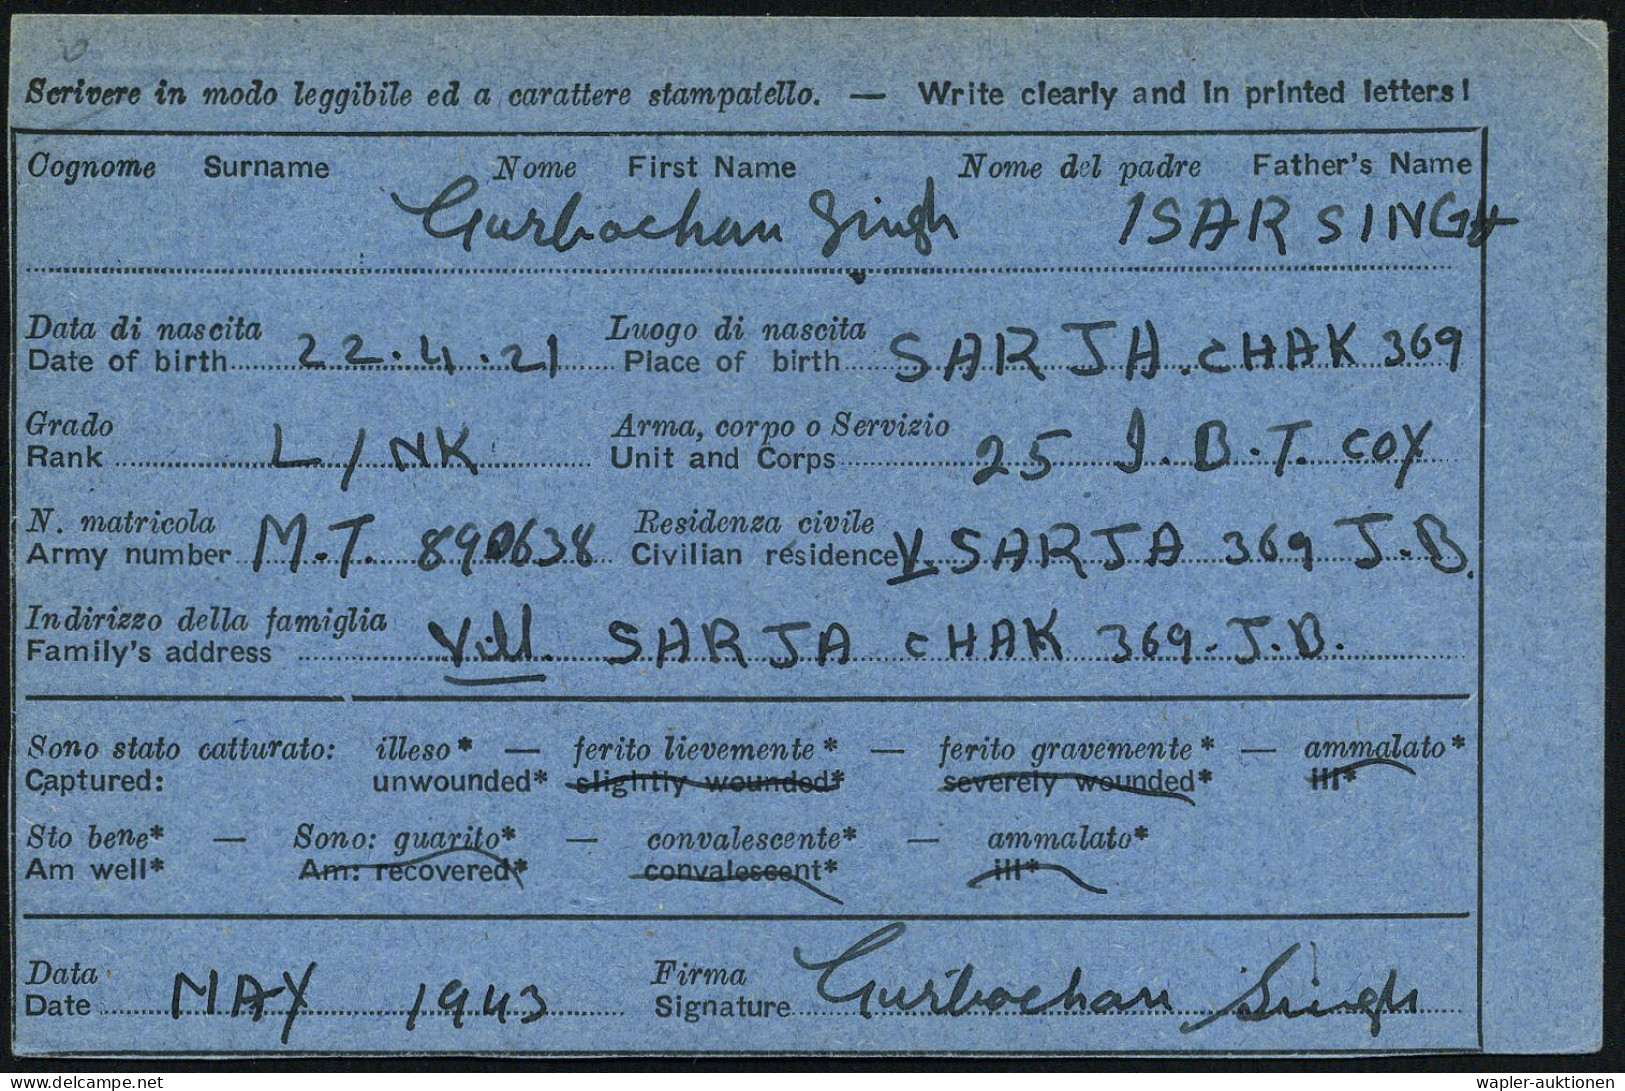 Scrivere in modo leggibile ed a carattere stampatello. — Write clearly and in printed letters!
Cognome Surname Nome First Name Nome del padre Father's Name
Gurbachan Singh ISAR SINGH
Data di nascita Luogo di nascita
Date of birth 22.4.21 Place of birth SARJA. CHAK 369
Grado Arma, corpo o Servizio
Rank L/NK Unit and Corps 25 I.B.T. COY
N. matricola Residenza civile
Army number M.T. 890638 Civilian residence V. SARJA 369 J.B.
Indirizzo della famiglia
Family's address Vill. SARJA CHAK 369. J.B.
Sono stato catturato: illeso* — ferito lievemente* — ferito gravemente* — ammalato*
Captured: unwounded* slightly wounded* severely wounded* ill*
Sto bene* — Sono: guarito* — convalescente* — ammalato*
Am well* Am: recovered* convalescent* ill*
Data Firma
Date MAY 1943 Signature Gurbachan Singh
delcampe.net wapler-auktionen